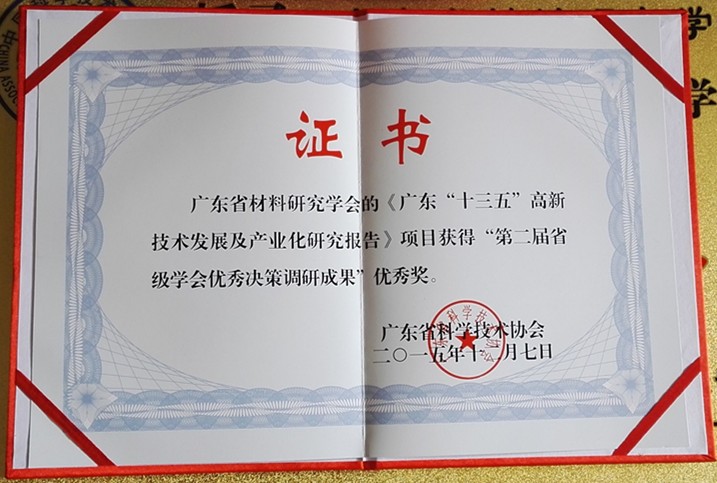 证书
广东省材料研究学会的《广东“十三五”高新
技术发展及产业化研究报告》项目获得“第二届省
级学会优秀决策调研成果”优秀奖。
广东省科学技术协会
二〇一五年十二月七日
学
学